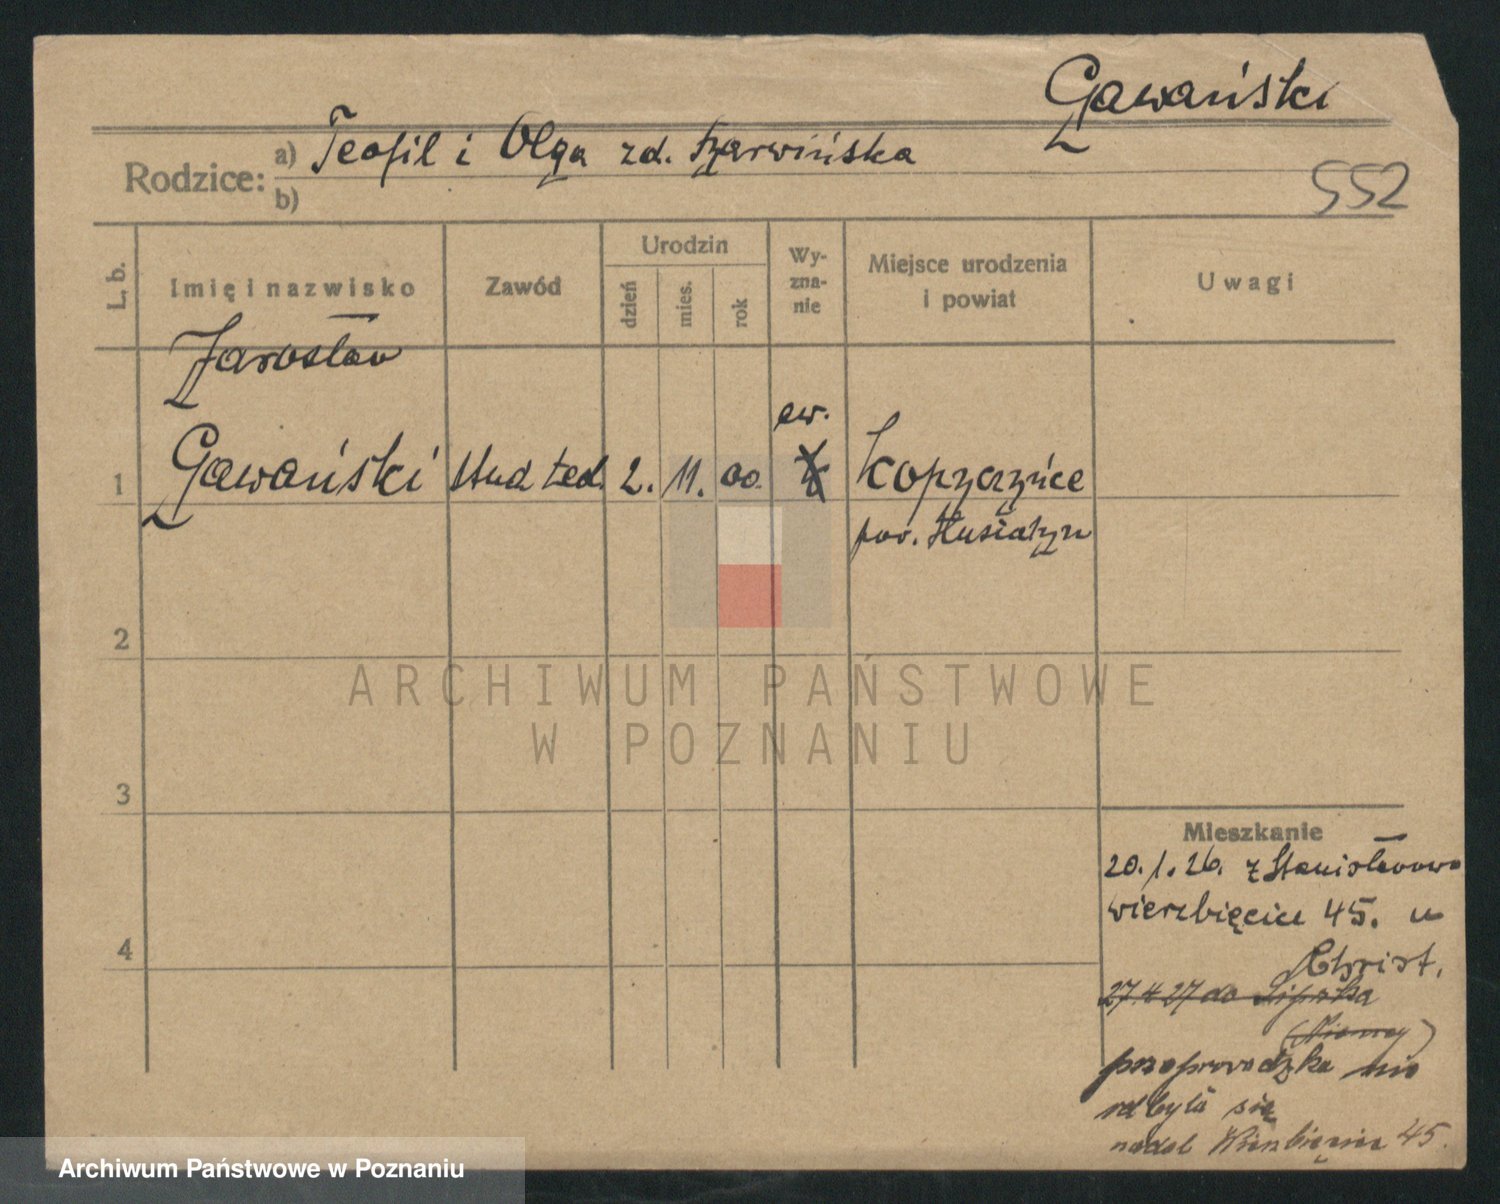 Gawański
Rodzice: a) Teofil i Olga zd. Czarwińska
b)
552
L. b.
Imię i nazwisko
Zawód
Urodzin
dzień
mies.
rok
Wy-
zna-
nie
Miejsce urodzenia
i powiat
Uwagi
Jarosław
1 Gawański stud 2. 11. 00. ew. Kopyczyńce
pow. Husiatyn
2
3
4
Mieszkanie
20. 1. 26. z Stanisławowa
wierzbięcice 45. u
Christ.
27.4 27 do Lipska
(Niemcy)
przeprowadzka nie
odbyła się
nadal Wierzbięcice 45.
ARCHIWUM PAŃSTWOWE
W POZNANIU
Archiwum Państwowe w Poznaniu